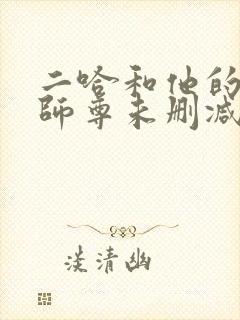 二哈和他的
師尊未删减
淡清幽